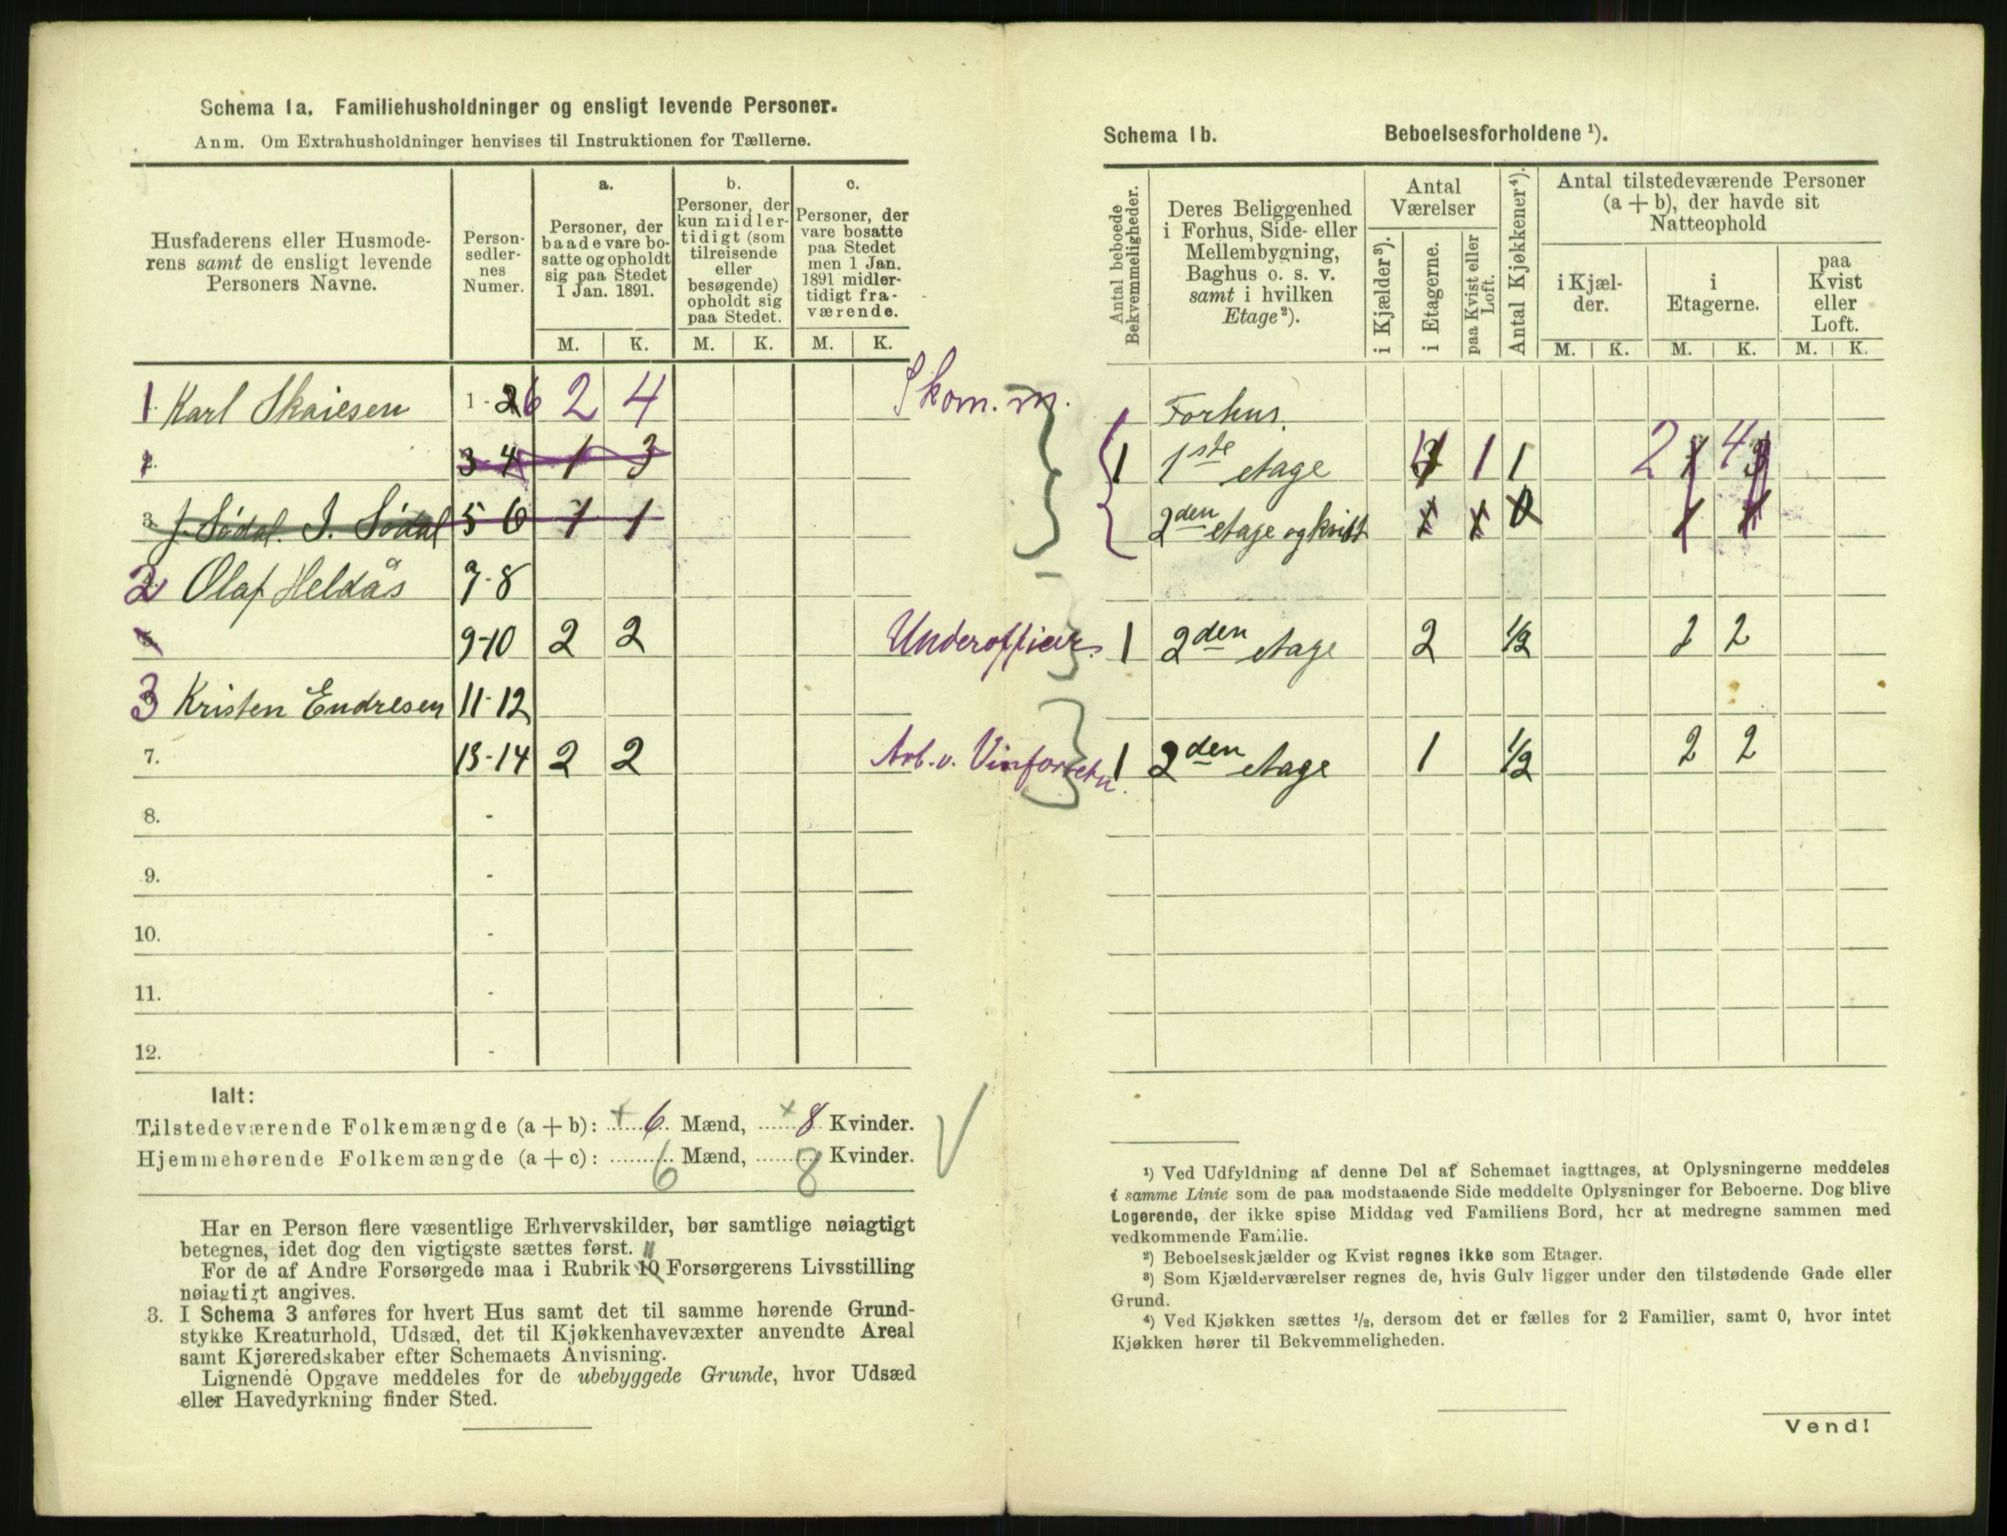 Schema 1a. Familiehusholdninger og ensligt levende Personer.
Anm. Om Extrahusholdninger henvises til Instruktionen for Tællerne.
Husfaderens eller Husmode-
rens samt de ensligt levende
Personers Navne.
Person-
sedler-
nes
Numer.
a.
Personer, der
baade vare bo-
satte og opholdt
sig paa Stedet
1 Jan. 1891.
b.
Personer, der
kun midler-
tidigt (som
tilreisende
eller
besøgende)
opholdt sig
paa Stedet.
c.
Personer, der
vare bosatte
paa Stedet
men 1 Jan.
1891 midler-
tidigt fra-
værende.
M. K. M. K. M. K.
1 Karl Skaiesen 1 - 6 2 4 Skom. m.
2. 3-4 1 3
3. J. Sødal. I. Sødal 5 6 1 1
2 Olaf Heldås 7-8
9-10 2 2 Underofficier
3 Kristen Endresen 11-12
7. 13-14 2 2 Arb. v. Vinforretn.
8. -
9. -
10. -
11. -
12. -
Ialt:
Tilstedeværende Folkemængde (a + b): 6 Mænd, 8 Kvinder.
Hjemmehørende Folkemængde (a + c): 6 Mænd, 8 Kvinder.
Har en Person flere væsentlige Erhvervskilder, bør samtlige nøiagtigt
betegnes, idet dog den vigtigste sættes først.
11
For de af Andre Forsørgede maa i Rubrik 10 Forsørgerens Livsstilling
nøiagtigt angives.
3. I Schema 3 anføres for hvert Hus samt det til samme hørende Grund-
stykke Kreaturhold, Udsæd, det til Kjøkkenhavevæxter anvendte Areal
samt Kjøreredskaber efter Schemaets Anvisning.
Lignende Opgave meddeles for de ubebyggede Grunde, hvor Udsæd
eller Havedyrkning finder Sted.
Schema 1b. Beboelsesforholdene ¹).
Antal beboede
Bekvemmeligheder.
Deres Beliggenhed
i Forhus, Side- eller
Mellembygning,
Baghus o. s. v.
samt i hvilken
Etage²).
Antal
Værelser
i Kjælder³).
i Etagerne.
paa Kvist eller
Loft.
Antal Kjøkkener⁴).
Antal tilstedeværende Personer
(a + b), der havde sit
Natteophold
i Kjæl-
der.
i
Etagerne.
paa
Kvist
eller
Loft.
M. K. M. K. M. K.
Forhus.
1 1ste etage 1 1 2 4
2den etage og kvist 1 1 0 1 1
1 2den etage 2 1/2 2 2
1 2den etage 1 1/2 2 2
¹) Ved Udfyldning af denne Del af Schemaet iagttages, at Oplysningerne meddeles
i samme Linie som de paa modstaaende Side meddelte Oplysninger for Beboerne. Dog blive
Logerende, der ikke spise Middag ved Familiens Bord, her at medregne sammen med
vedkommende Familie.
²) Beboelseskjælder og Kvist regnes ikke som Etager.
³) Som Kjælderværelser regnes de, hvis Gulv ligger under den tilstødende Gade eller
Grund.
⁴) Ved Kjøkken sættes ½, dersom det er fælles for 2 Familier, samt 0, hvor intet
Kjøkken hører til Bekvemmeligheden.
Vend!